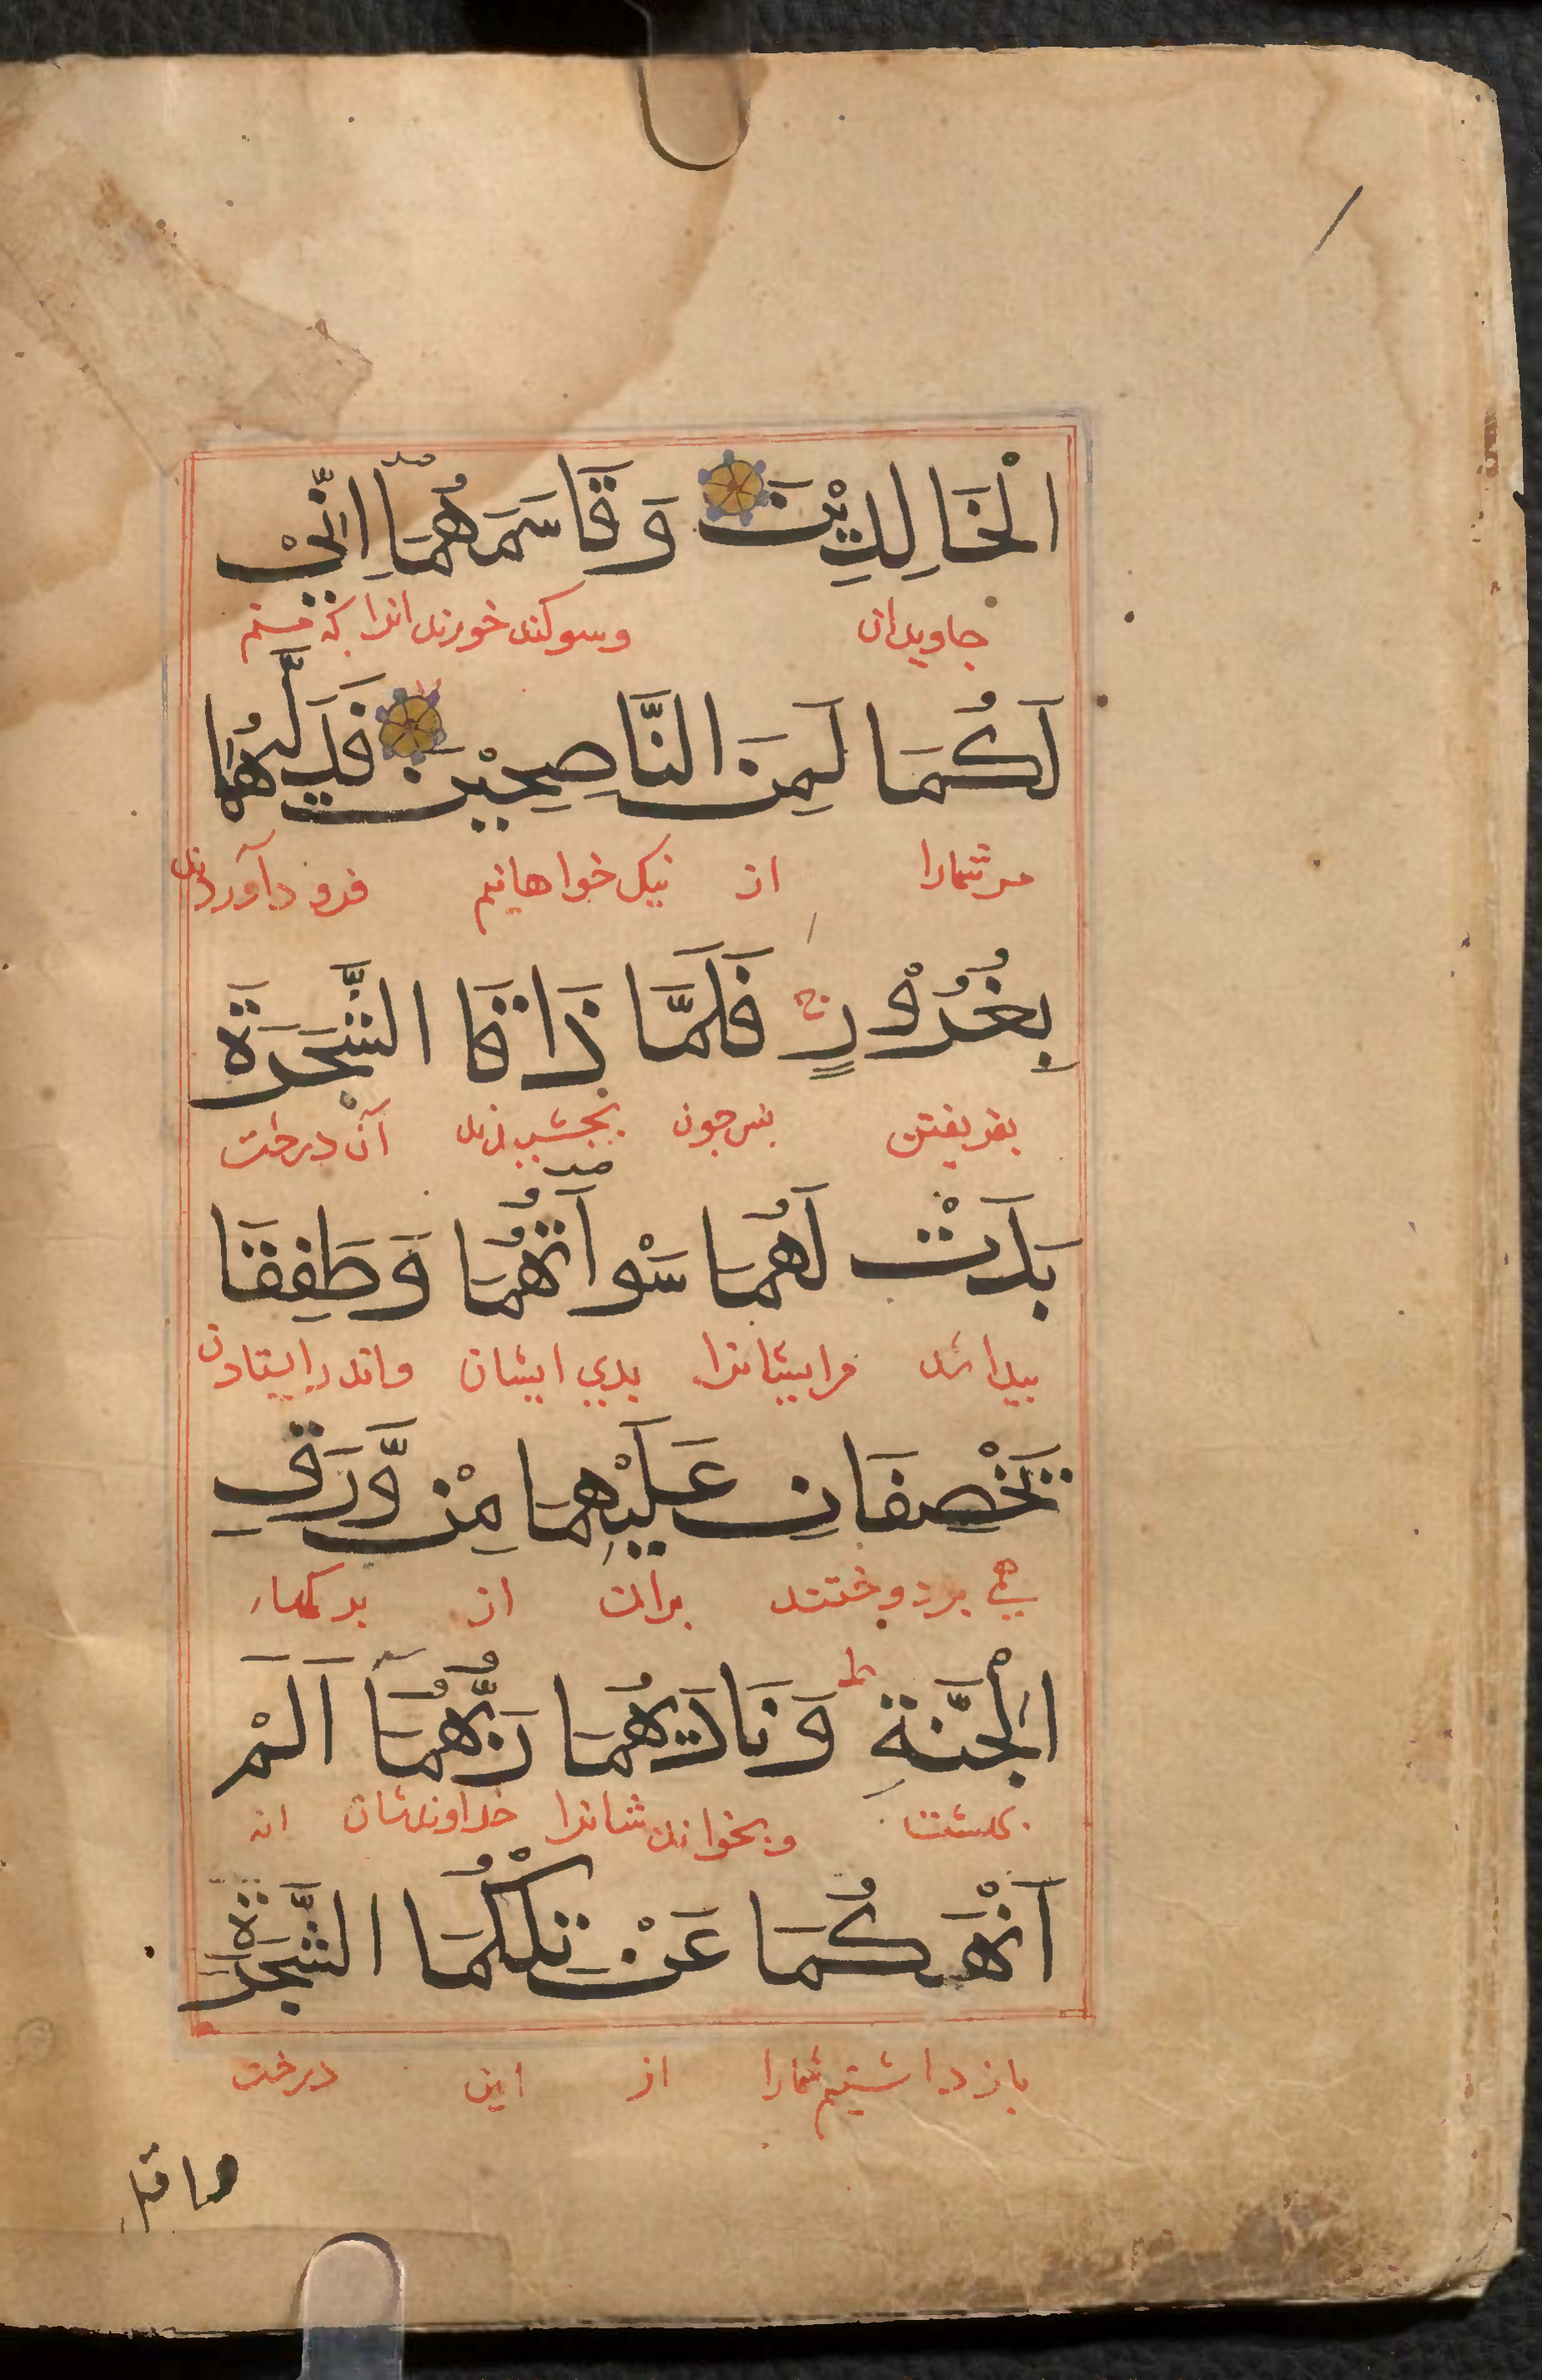 الْخَالِدِيْنَ وَقَاسَمَهُمَآ اِنِّيْ
جاویدان وسوکند خوردند انرا که منم
لَكُمَا لَمِنَ النَّاصِحِيْنَ فَدَلّٰىهُمَا
مر شمارا از نیک خواهانیم فرود آوردند
بِغُرُوْرٍ ج فَلَمَّا ذَاقَا الشَّجَرَةَ
بفریفتن پس چون بچشیدند آن درخت
بَدَتْ لَهُمَا سَوْاٰتُهُمَا وَطَفِقَا
پیدا شد مرایشانرا بدی ایشان واندر ایستادن
يَخْصِفَانِ عَلَيْهِمَا مِنْ وَّرَقِ
همی بردوختند بران از برکهاء
الْجَنَّةِ ط وَنَادٰىهُمَا رَبُّهُمَآ اَلَمْ
بهشت وبخواند شانرا خداوندشان انه
اَنْهَكُمَا عَنْ تِلْكُمَا الشَّجَرَةِ
باز داشتیم شمارا از این درخت